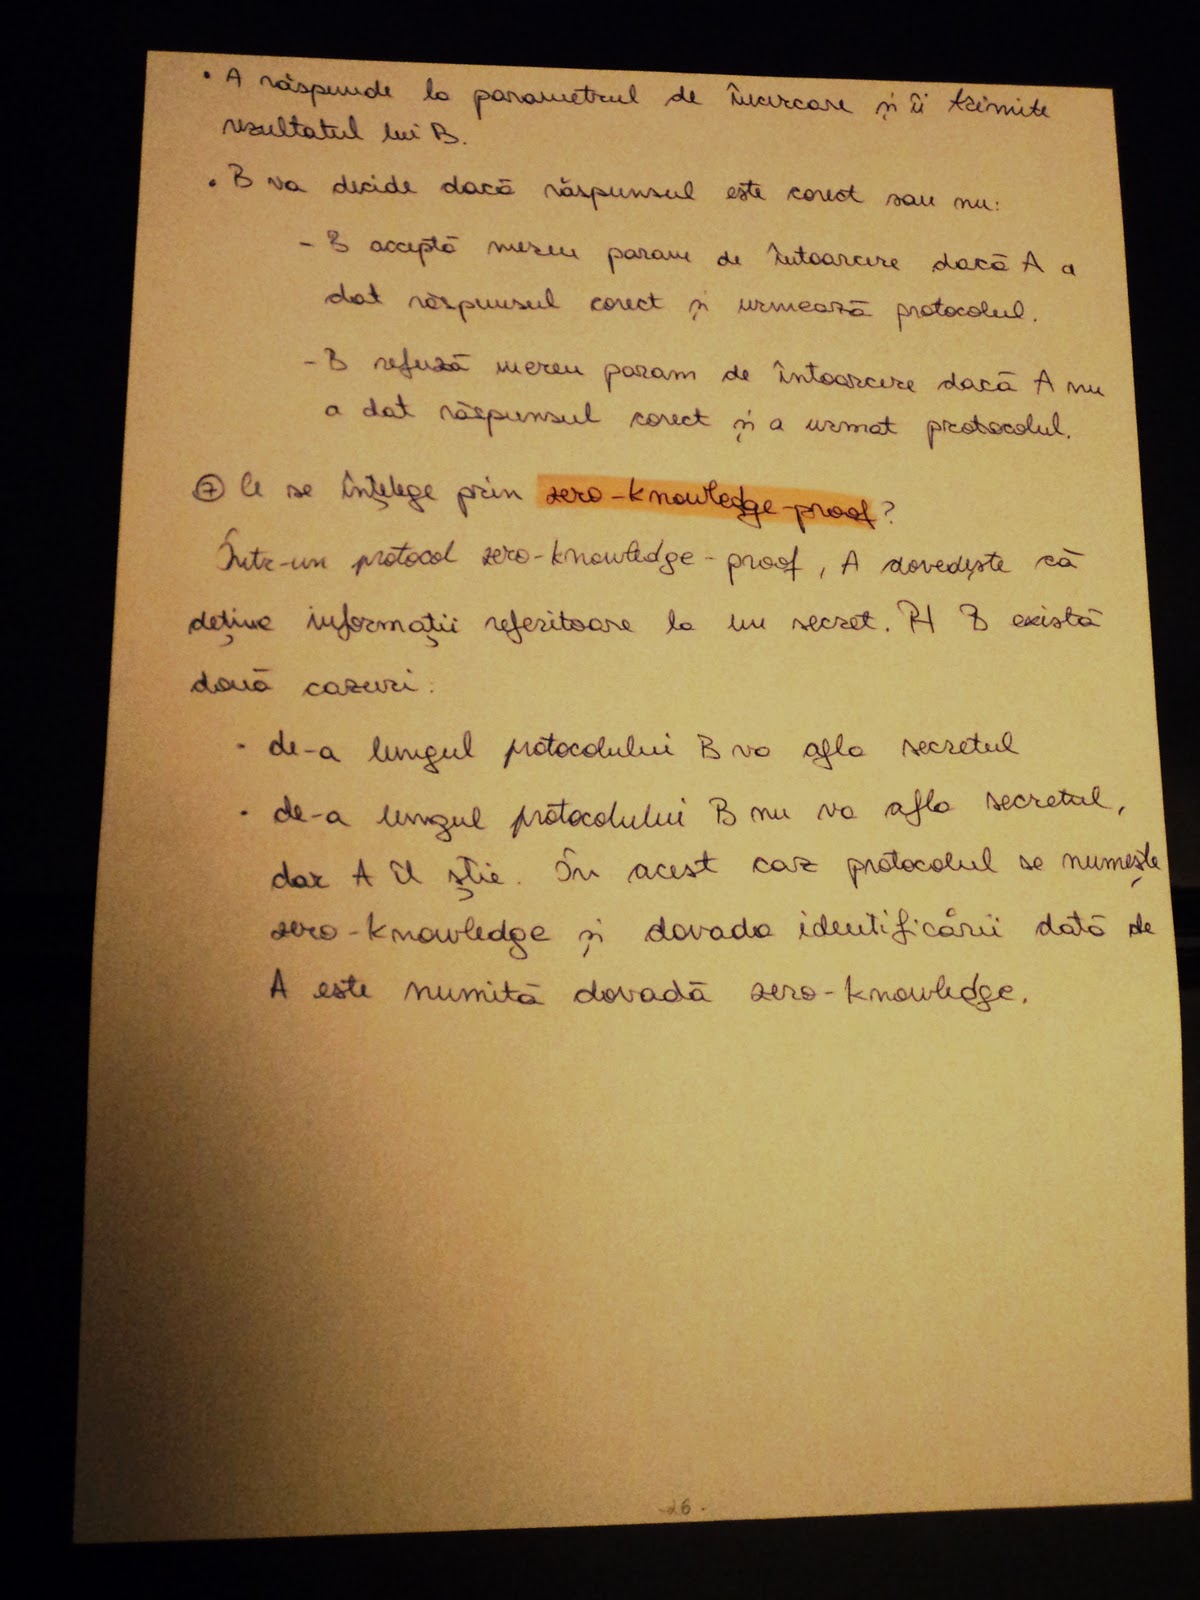 • A răspunde la parametrul de încercare și îi trimite
rezultatul lui B.
• B va decide dacă răspunsul este corect sau nu:
- B acceptă mereu param de întoarcere dacă A a
dat răspunsul corect și urmează protocolul.
- B refuză mereu param de întoarcere dacă A nu
a dat răspunsul corect și a urmat protocolul.
⑦ Ce se înțelege prin zero-knowledge-proof?
Într-un protocol zero-knowledge-proof, A dovedește că
deține informații referitoare la un secret. Pt B există
două cazuri:
• de-a lungul protocolului B va afla secretul
• de-a lungul protocolului B nu va afla secretul,
dar A îl știe. În acest caz protocolul se numește
zero-knowledge și dovada identificării dată de
A este numită dovadă zero-knowledge.
-26-